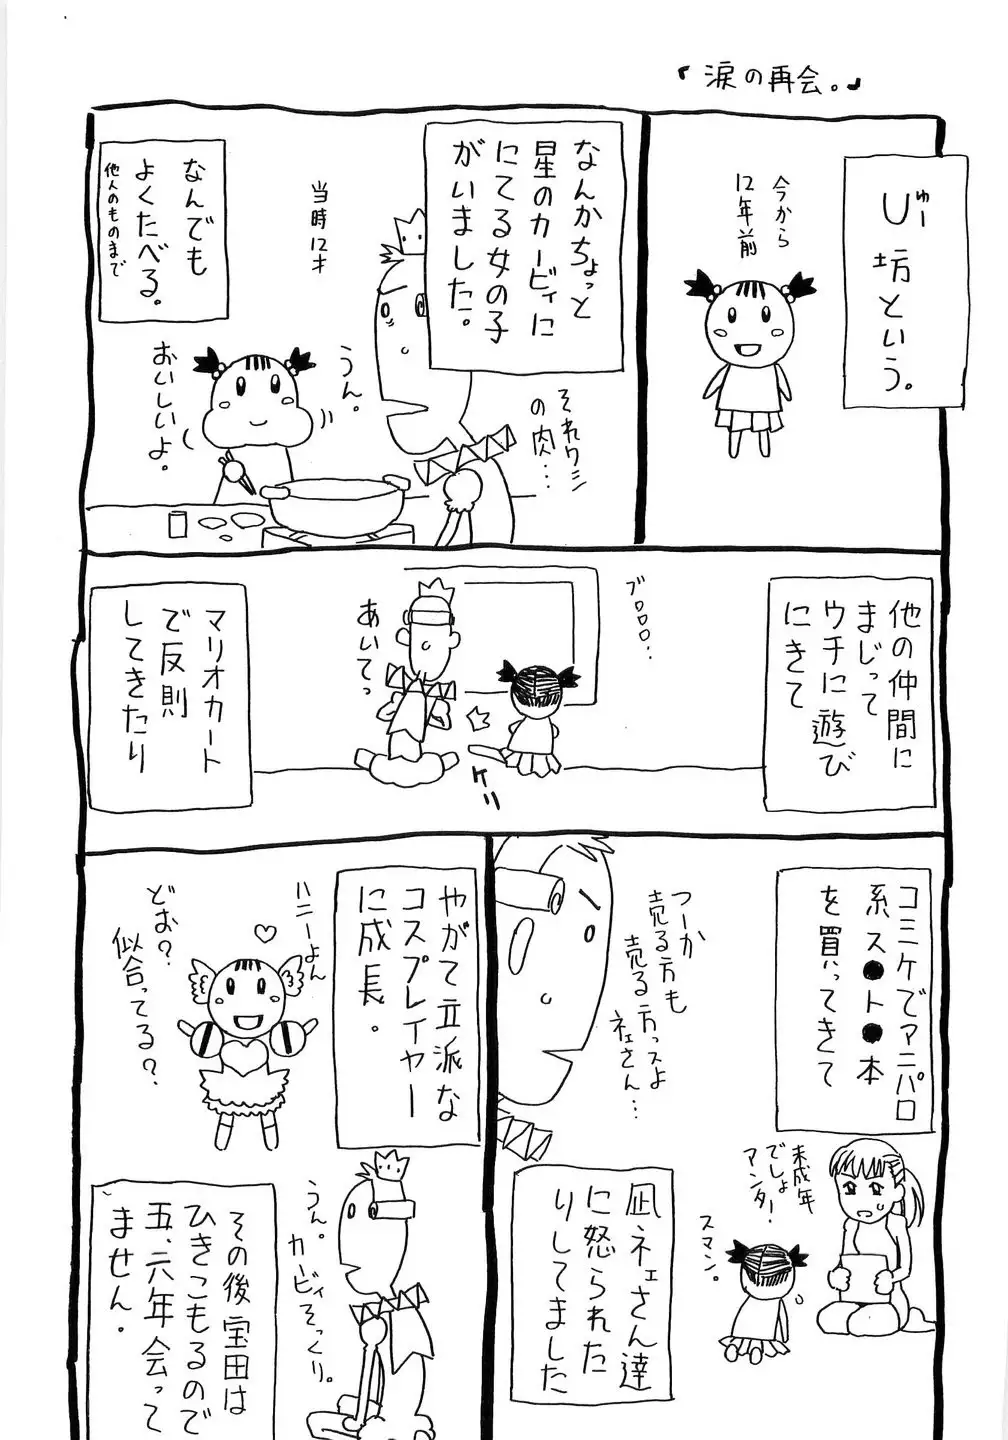 『涙の再会。』
今から
12年前
U坊という。
ゅー
なんかちょっと
星のカービィに
にてる女の子
がいました。
当時12才
なんでも
よくたべる。
他人のものまで
それワシ
の肉…
うん。
おいしいよ。
他の仲間に
まじって
ウチに遊び
にきて
ブロロロ…
あいてっ
ケリ
マリオカート
で反則
してきたり
コミケでアニパロ
系ス●ト●本
を買ってきて
つーか
売る方も
売る方っスよ
ネェさん…
未成年
でしょ
アンター！
スマン。
凪ネェさん達
に怒られた
りしてました
やがて立派な
コスプレイヤー
に成長。
ハニーよん
どお？
似合ってる？
うん。
カービィそっくり。
その後宝田は
ひきこもるので
五、六年会って
ません。